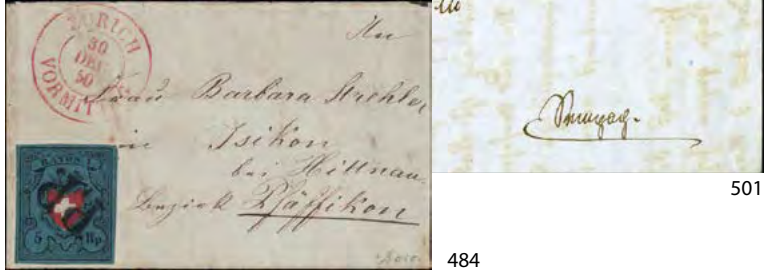 ZÜRICH
30
DEC
50
VORMITTAG
An
Frau Barbara Strehler
in Isikon
bei Hittnau
Bezirk Pfäffikon
RAYON
5 Rp.
501
484